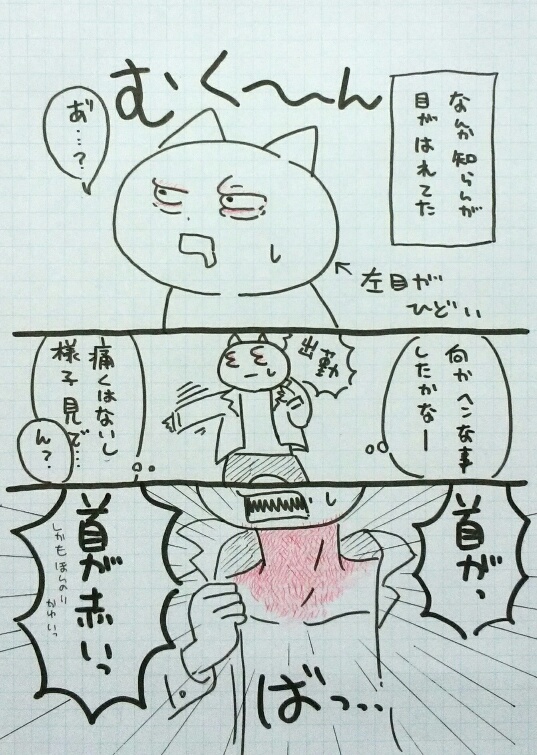 なんか知らんが
目がはれてた
むく〜〜ん
あ゛…?
左目が
ひどい
何かヘンな事
したかなー
出勤
痛くはないし
様子見で…
ん?
首がっ
首が赤いっ
しかもほんのり
かゆいっ
ばっ…